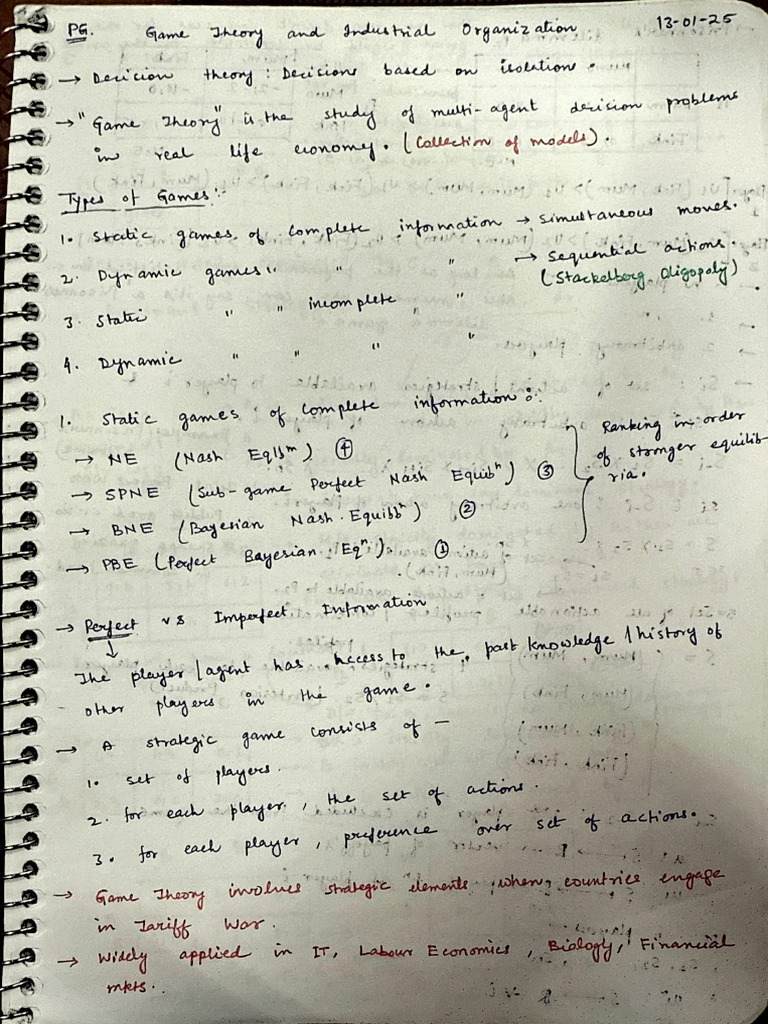 PG. Game Theory and Industrial Organization 13-01-25
→ Decision theory : Decisions based on isolation.
→ "Game Theory" is the study of multi-agent decision problems
in real life economy. (Collection of models).
Types of Games :-
1. Static games of complete information → Simultaneous moves.
2. Dynamic games " " " → Sequential actions.
(Stackelberg Oligopoly)
3. Static " " incomplete "
4. Dynamic " " " "
1. Static games of complete information :-
→ NE (Nash Eqlbᵐ) ④
→ SPNE (Sub-game Perfect Nash Equibⁿ) ③
→ BNE (Bayesian Nash Equibbⁿ) ②
→ PBE (Perfect Bayesian Eqⁿ). ①
Ranking in order
of stronger equilib-
ria.
→ Perfect vs Imperfect Information
↓
The player / agent has access to the past knowledge / history of
other players in the game.
→ A strategic game consists of —
1. set of players.
2. for each player, the set of actions.
3. for each player, preference over set of actions.
→ Game Theory involves strategic elements when countries engage
in Tariff War.
→ Widely applied in IT, Labour Economics, Biology, Financial
mkts.